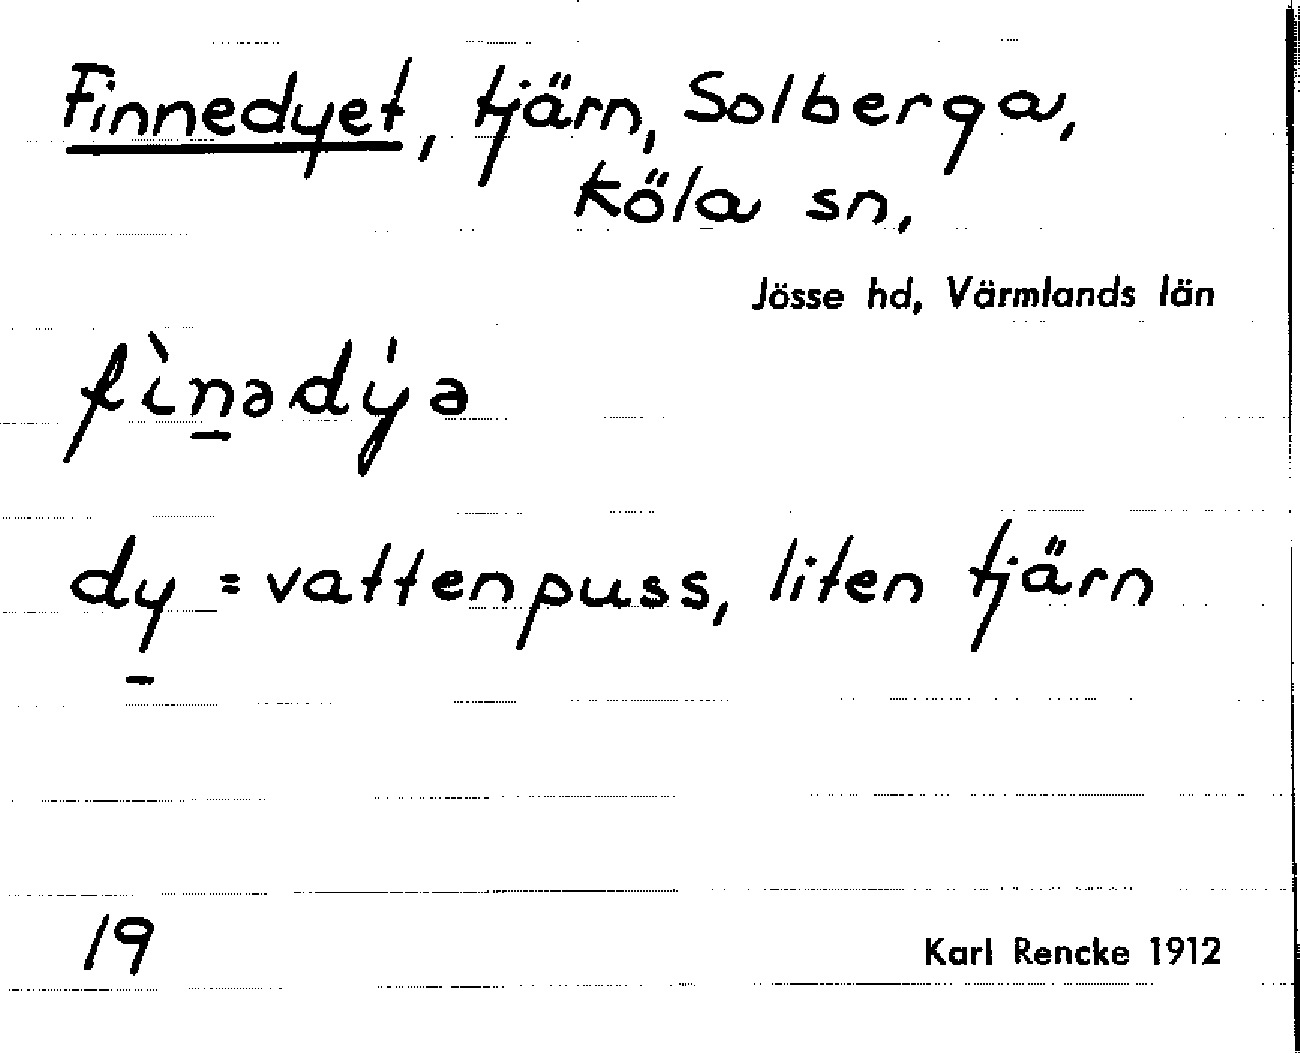 Finnedyet, tjärn, Solberga,
Köla sn,
Jösse hd, Värmlands län
fìn̲ədýə
dy̲ = vattenpuss, liten tjärn
19
Karl Rencke 1912